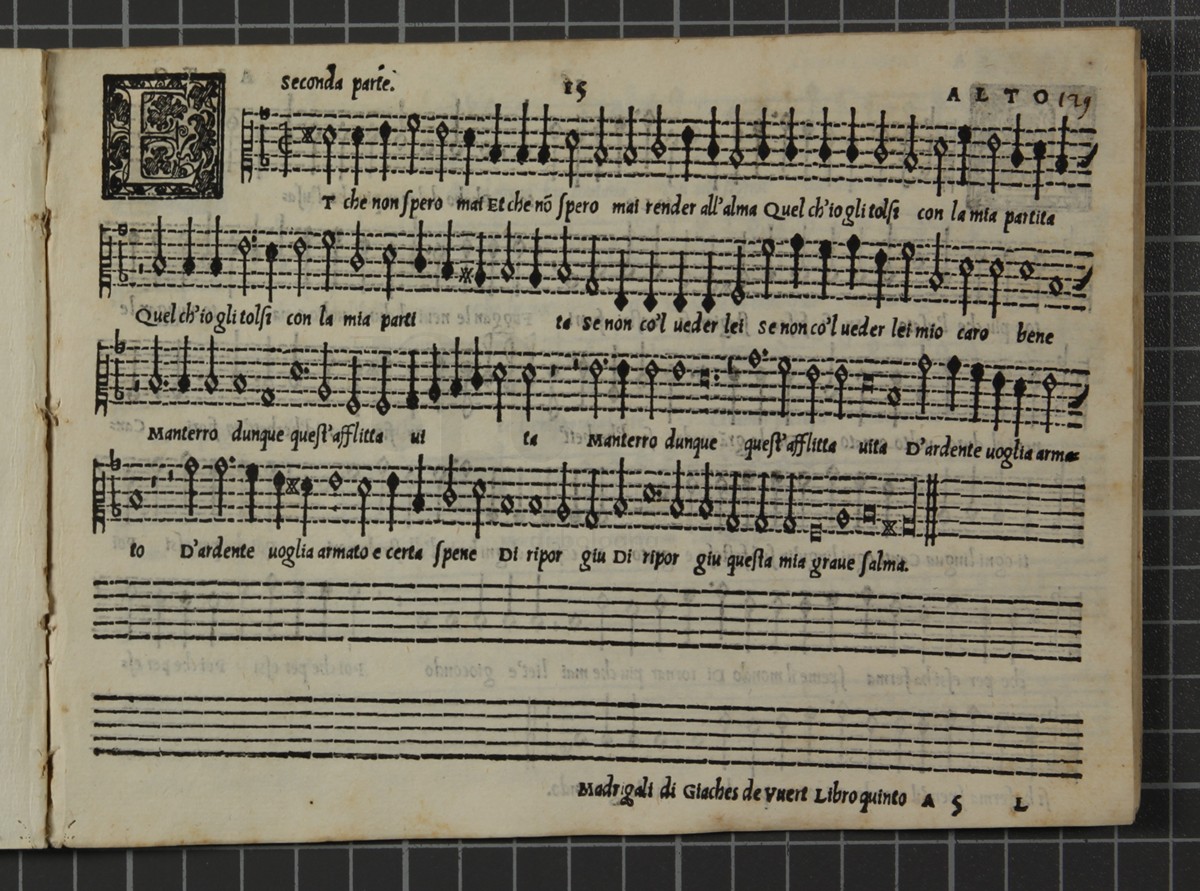 Seconda parte. 15 ALTO 129
ET che non spero mai Et che nõ spero mai render all'alma Quel ch'io gli tolsi con la mia partita
Quel ch'io gli tolsi con la mia parti ta Se non co'l ueder lei Se non co'l ueder lei mio caro bene
Manterro dunque quest'afflitta ui ta Manterro dunque quest'afflitta uita D'ardente uoglia arma-
to D'ardente uoglia armato e certa spene Di ripor giu Di ripor giu questa mia graue salma.
Madrigali di Giaches de Vuert Libro quinto A 5 L